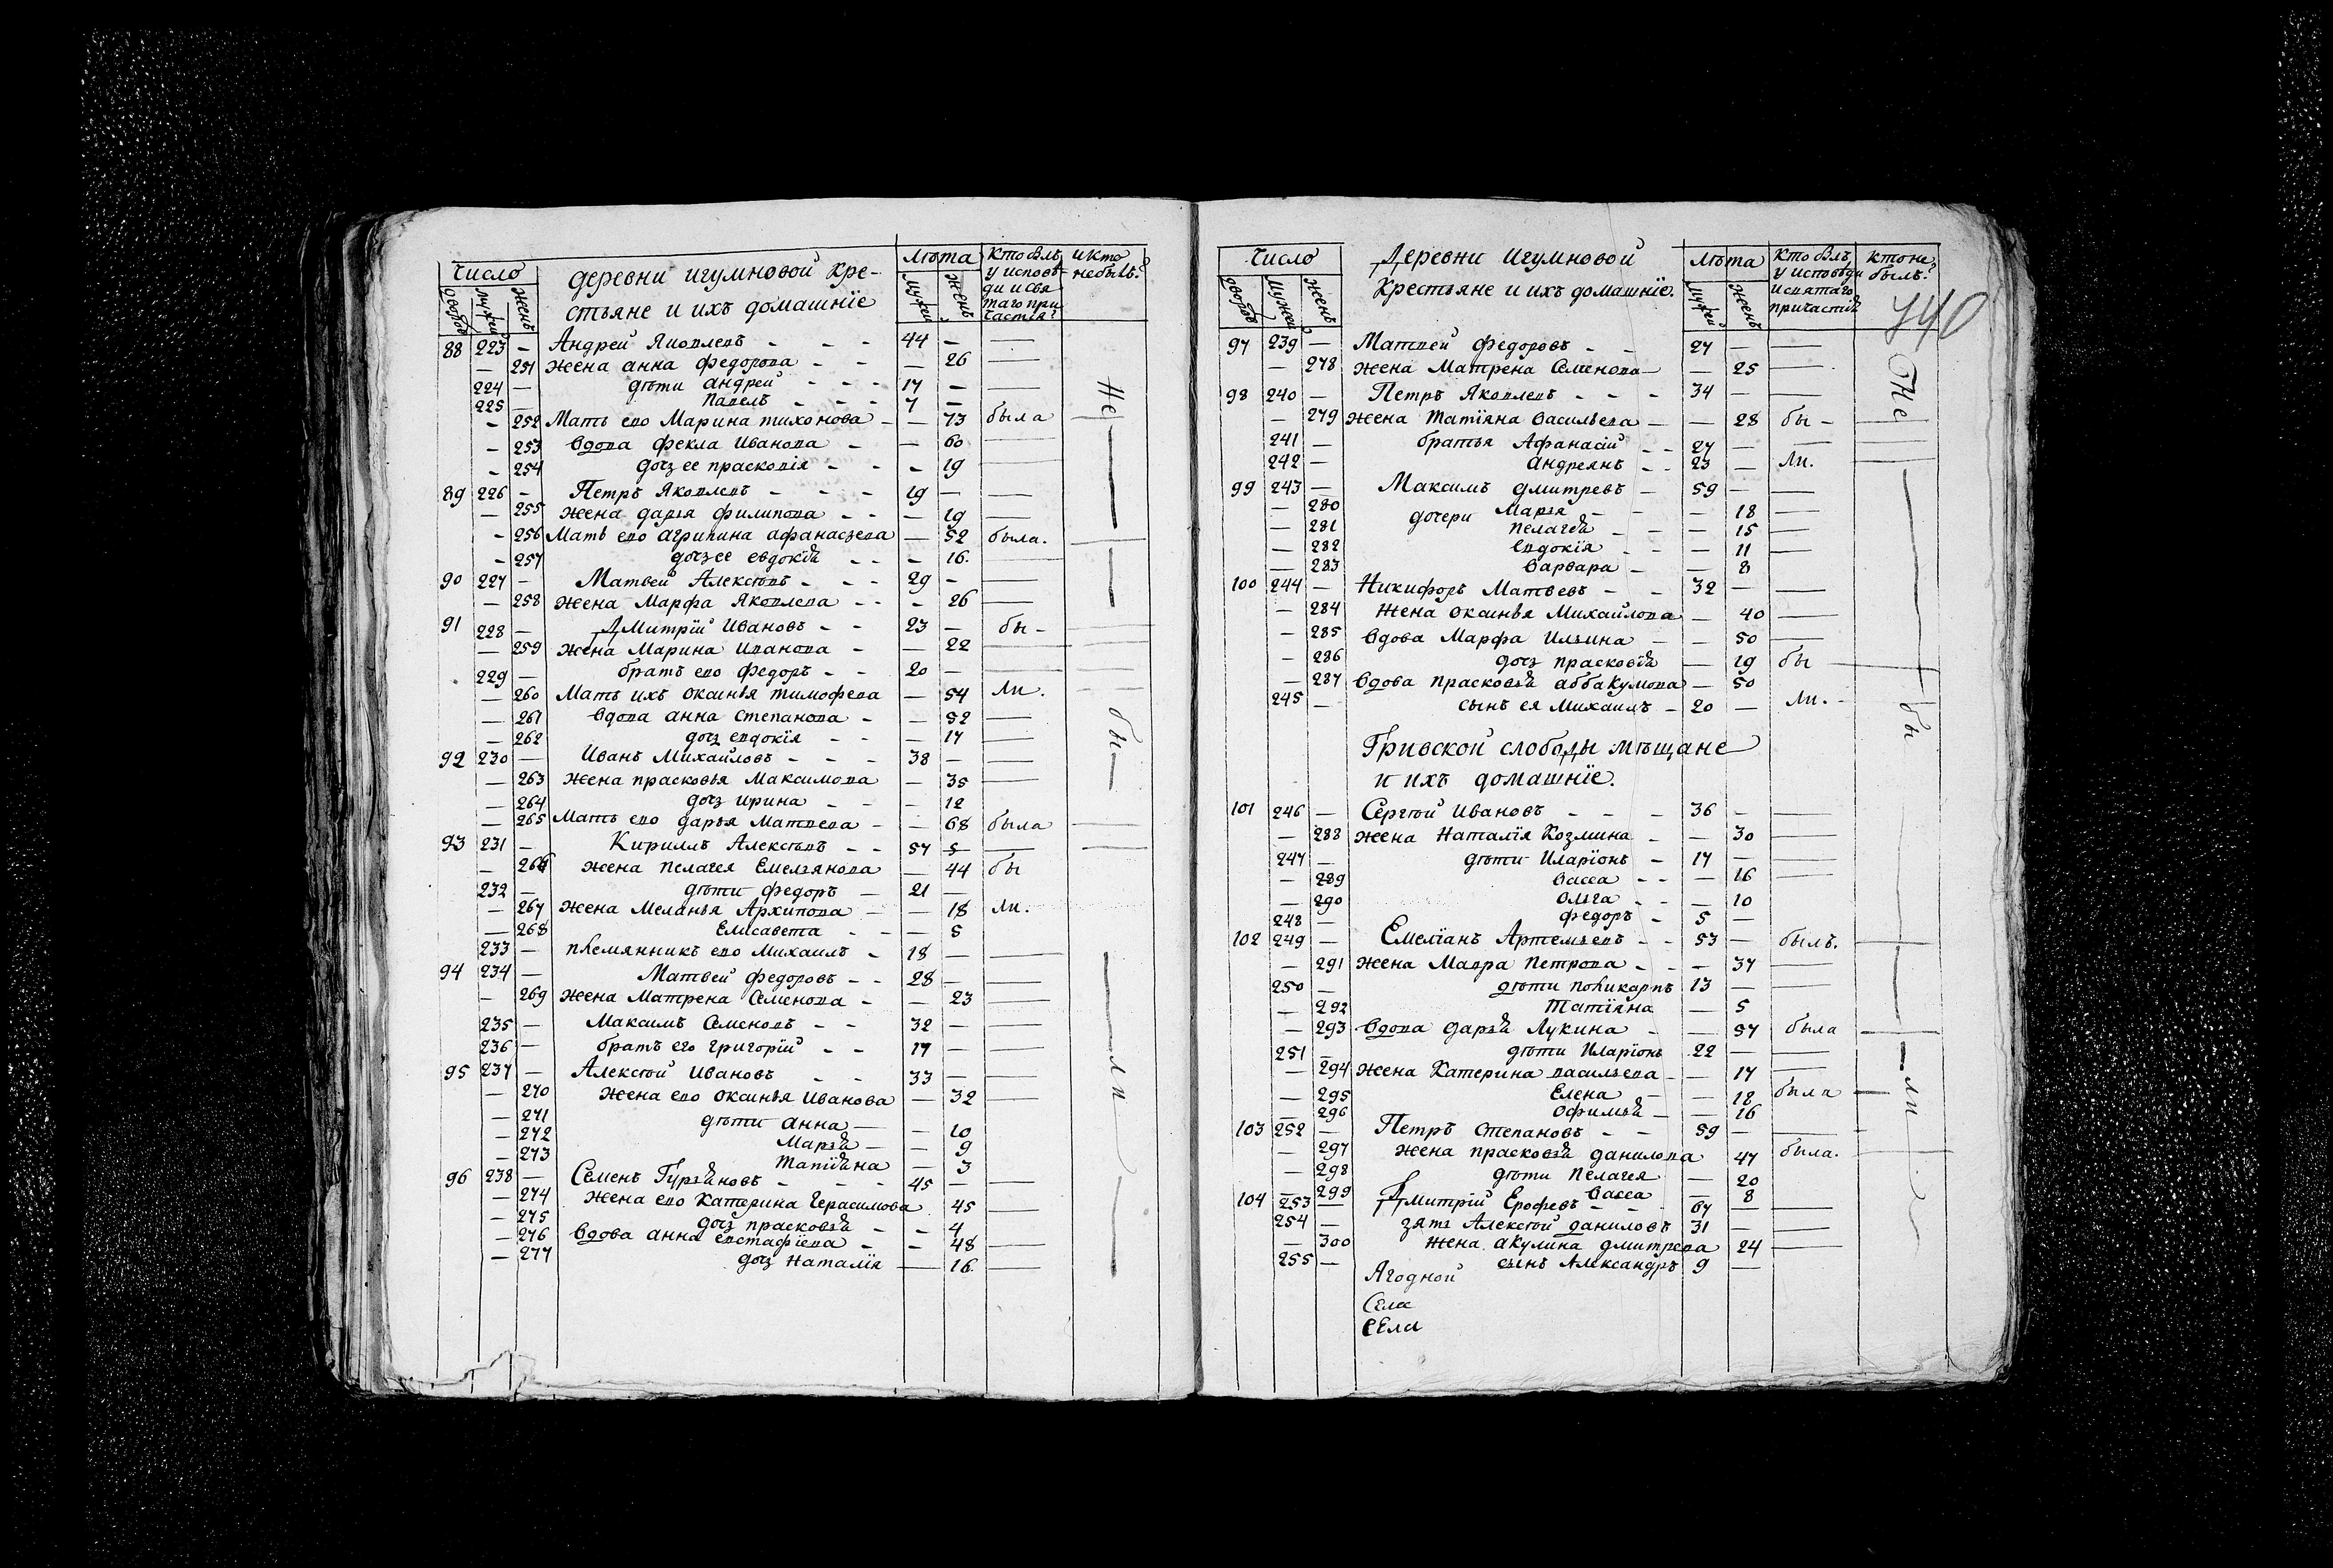 Число
деревни игумновой кре-
стьяне и ихъ домашнїе
лѣта
кто былъ
у исповѣ-
ди и свя
таго при
частїя?
и кто
небылъ?
дворовъ мужей женъ
мужей женъ
88 223 — Андрей Яковлевъ - - - 44 —
— 251 жена анна федорова - - — 26
224 — дѣти андрей - - - 17 —
225 — павелъ - - - 7 —
- 252 Мать его Марина тихонова - — 73 была
- 253 вдова фекла Иванова - — 60
- 254 дочь ее прасковїя - - - 19
89 226 - Петръ Яковлевъ - - - 19 —
— 255 жена дарья филипова - - — 19
- 256 Мать его агрипина афанасьева — 52 была.
- 257 дочь ее евдокїя - - - 16.
90 227 — Матвей Алексѣевъ - - - 29 -
— 258 жена Марфа Яковлева - - - 26
91 228 — Дмитрїй Ивановъ - - 23 — бы -
— 259 жена Марина Иванова - — 22
229 — братъ его федоръ - - 20 —
— 260 Мать ихъ оксинья тимофева — 54 ли.
— 261 вдова анна степанова - — 52
— 262 дочь евдокїя - - — 17
92 230 — Иванъ Михайловъ - - - 38 —
— 263 жена прасковья Максимова — 35
— 264 дочь ирина - - - 12
— 265 Мать его дарья Матвева - — 68 была
93 231 — Кириллъ Алексѣевъ - - 57 —
— 266 жена пелагея Емельянова — 44 бы
232 — дѣти федоръ — 21 —
— 267 жена Меланья Архипова — — 18 ли.
— 268 Елисавета - - — 5
233 — племянникъ его Михаилъ - 18 —
94 234 — Матвей федоровъ - - 28 -
- 269 жена Матрена Семенова - — 23
235 — Максимъ Семеновъ - - 32 —
236 — братъ его григорїй - - 17 —
95 237 — Алексѣй Ивановъ - - 33 —
— 270 жена его оксинья Иванова — 32
— 271 дѣти анна — — 10
— 272 Марья — — 9
— 273 татїяна — 3
96 238 — Семенъ Гурьяновъ - - - 45 —
— 274 жена его катерина герасимова 45
— 275 дочь прасковья - - 4
— 276 вдова анна евстафїева - - 48
— 277 дочь наталїя — 16.
Не
бы
ли
Число
Деревни игумновой
Крестьяне и ихъ домашнїе.
лѣта
кто былъ
у исповѣди
и святаго
причастїя
кто не
былъ?
740
дворовъ мужей женъ
мужей женъ
97 239 — Матвей федоровъ - - 27 —
— 278 жена Матрена Семенова — — 25
98 240 — Петръ Яковлевъ - - - 34 —
- 279 жена татїяна васильева — — 28 бы -
241 — братья Афанасїй - - 27 —
242 — андреянъ - - 23 — ли.
99 243 — Максимъ дмитревъ - 59 —
— 280 дочери Марья - - — 18
— 281 пелагея - - — 15
— 282 евдокїя - - — 11
— 283 варвара — — 8
100 244 — Никифоръ Матвевъ - - 32 —
— 284 жена оксинья Михайлова — 40
— 285 вдова Марфа Ильина — — 50
— 286 дочь прасковья — 19 бы
— 287 вдова прасковья аббакумова — 50
245 — сынъ ея Михаилъ - 20 — ли. -
Гривской слободы мѣщане
и ихъ домашнїе.
101 246 — Сергѣй Ивановъ - - - 36 -
— 288 жена Наталїя Козмина - — 30
247 — дѣти Иларїонъ - 17 —
— 289 васса - - — 16
— 290 Ольга - - — 10
248 — федоръ - 5 —
102 249 — Емелїанъ Артемьевъ - - 53 — былъ.
— 291 жена Мавра петрова - - - 37
250 — дѣти поликарпъ 13 —
— 292 Татїяна — 5
— 293 вдова дарья Лукина - — 57 была
251 — дѣти Иларїонъ 22 —
— 294 жена Катерина васильева - — 17
— 295 Елена — — 18 была
— 296 Офимья — — 16
103 252 — Петръ степановъ - - 59 —
— 297 жена прасковья данилова 47 была.
— 298 дѣти пелагея — 20
— 299 васса — 8
104 253 — Дмитрїй Ерофевъ - - - 67 —
254 — зять Алексѣй даниловъ 31 —
— 300 жена акулина дмитрева 24
255 — сынъ Александръ 9 —
Ягодной
Села
Села
Не
бы
ли